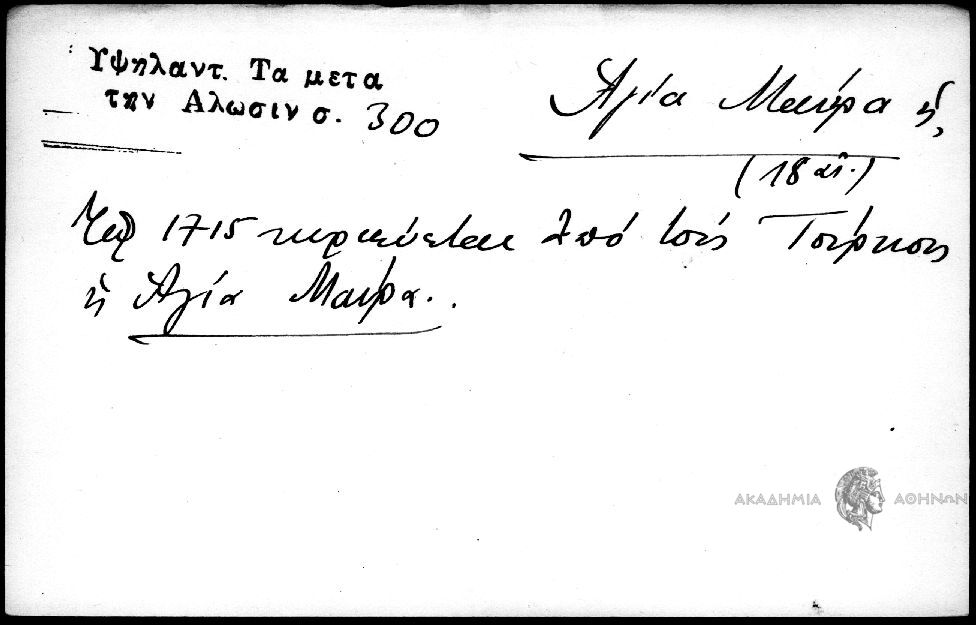 Υψηλαντ. Τα μετα
την Αλωσιν σ. 300
Αγία Μαύρα ἡ,
(18 αἰ.)
Τῷ 1715 κυριεύεται ἀπό τούς Τούρκους
ἡ Ἁγία Μαύρα.
ΑΚΑΔΗΜΙΑ ΑΘΗΝΩΝ